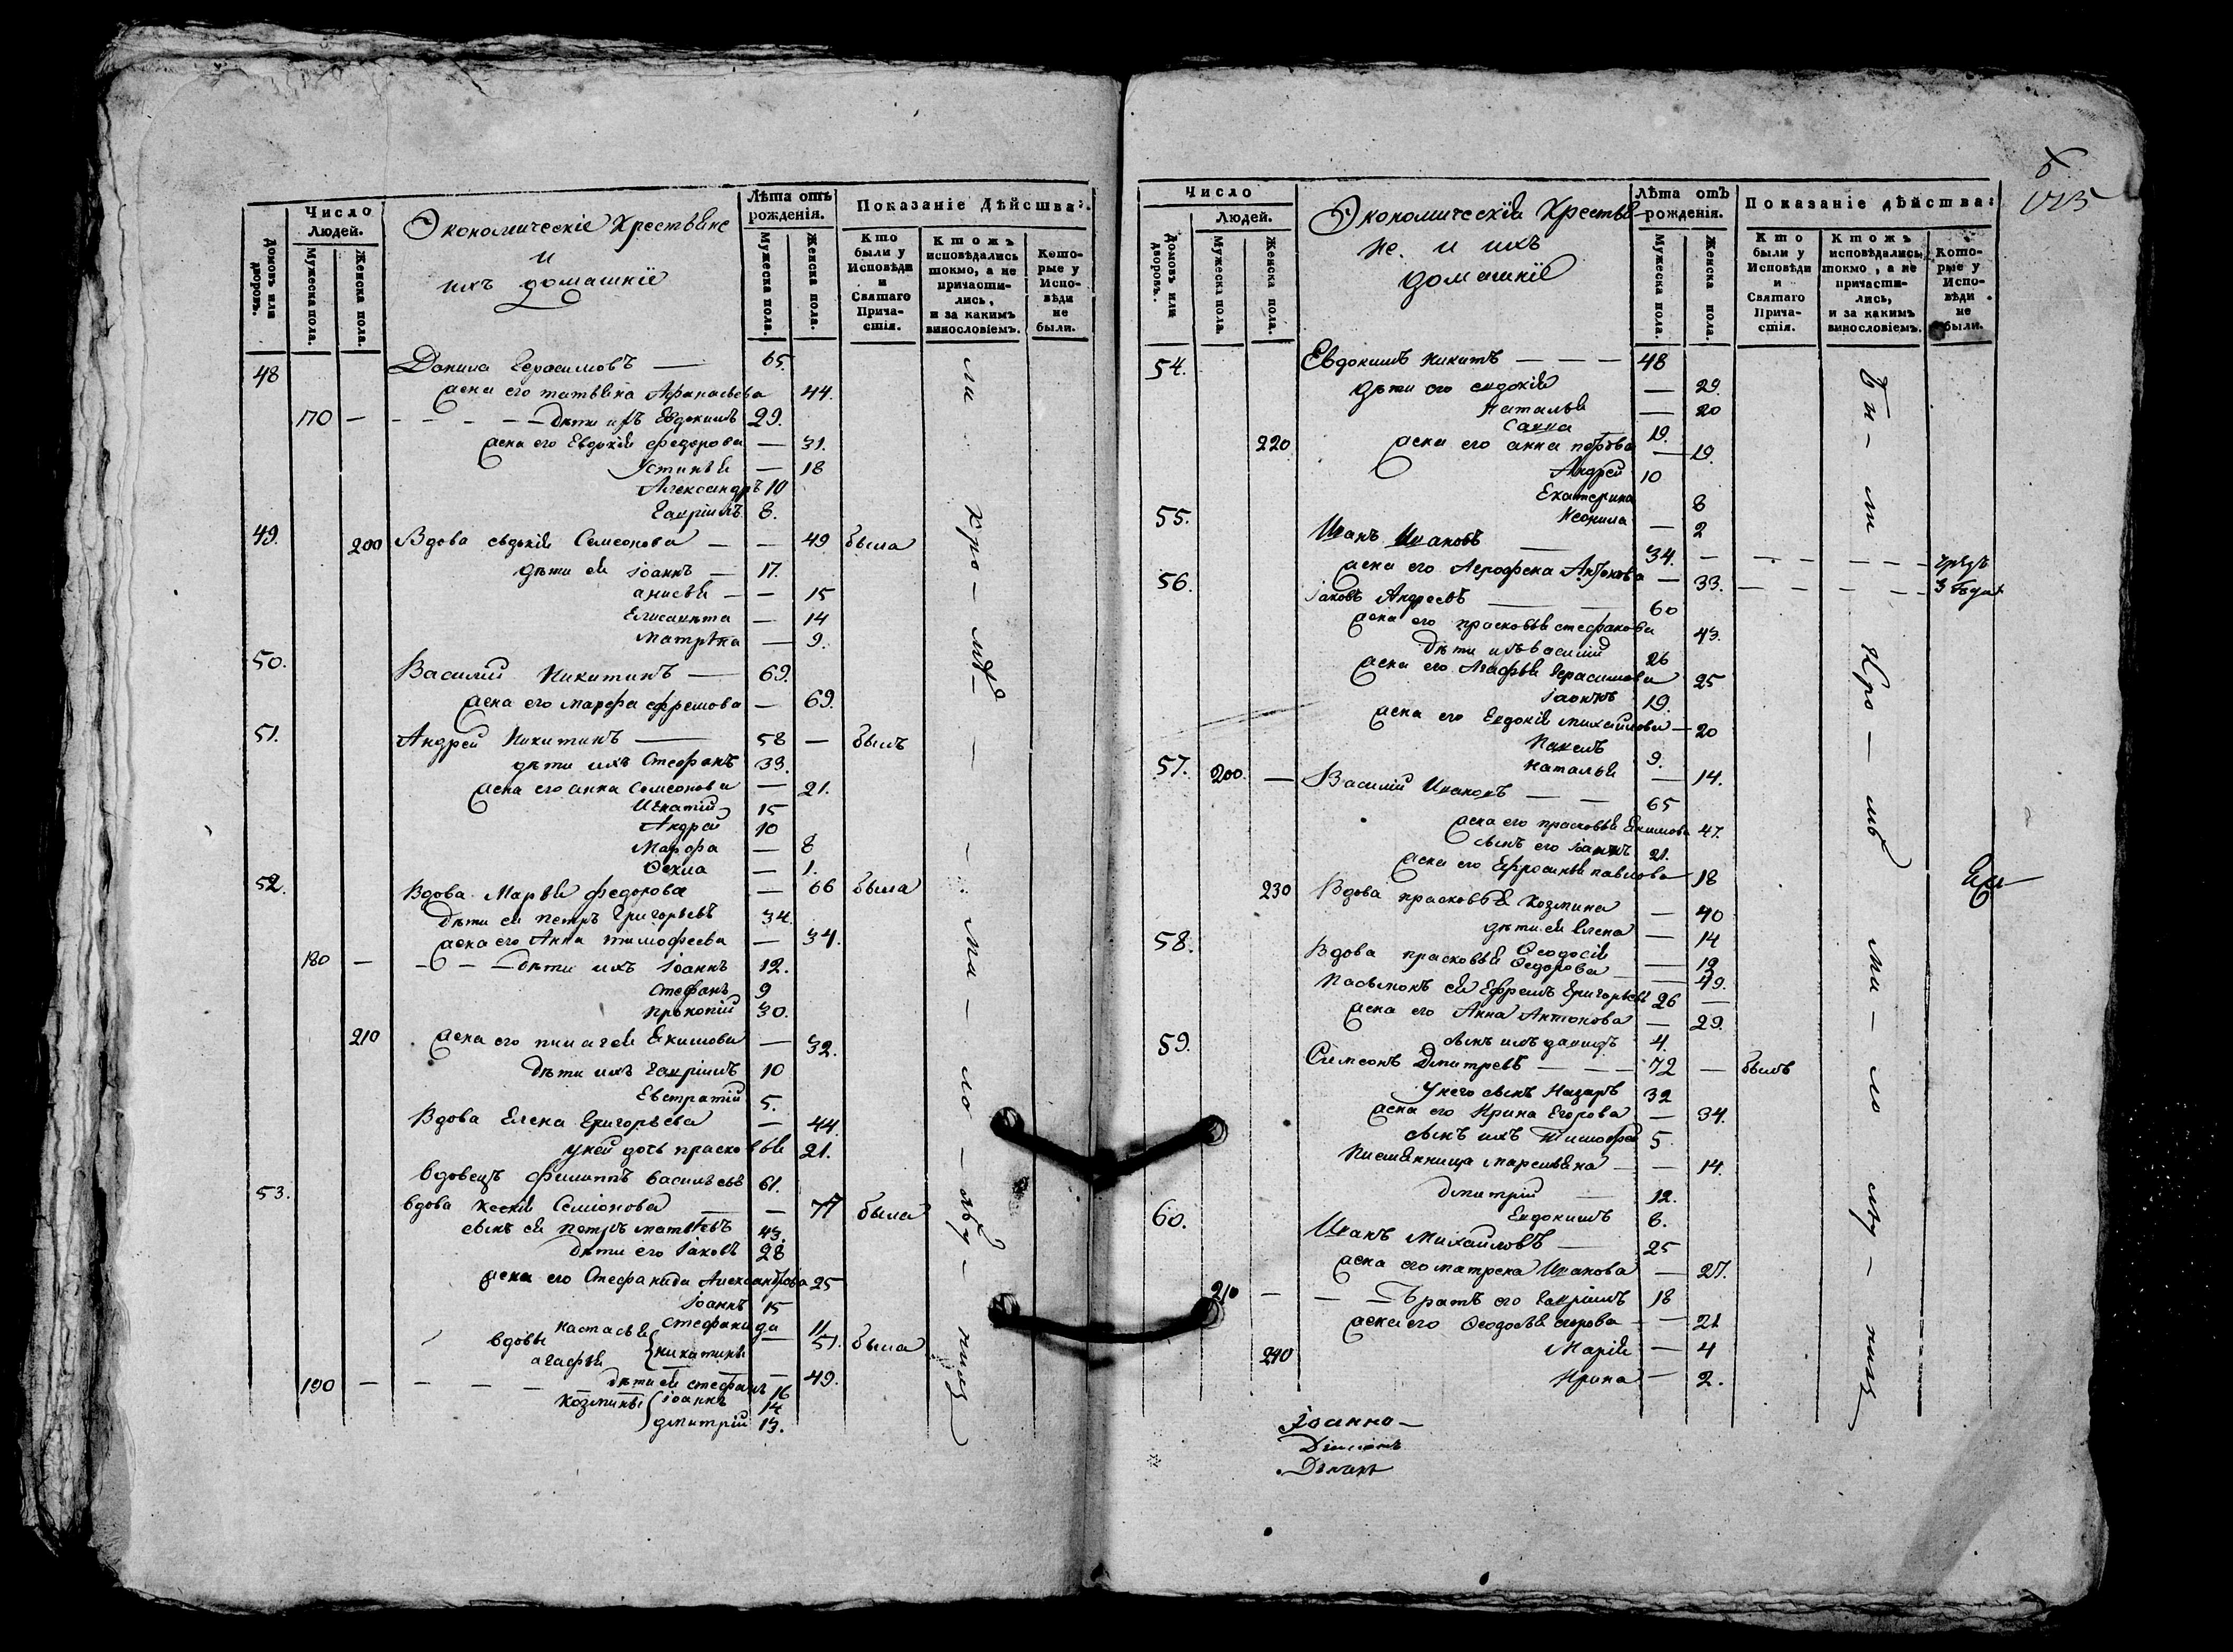 Число
Людей.
Домовъ или дворовъ.
Мужеска пола.
Женска пола.
Экономическіе Крестьяне
и
ихъ домашніе
Лѣта отъ рожденія.
Мужеска пола.
Женска пола.
Показаніе Дѣйства:
Кто были у Исповѣди и Святаго Причастія.
Ктожъ исповѣдались токмо, а не причастились, и за какимъ винословіемъ.
Которые у Исповѣди не были.
48 Данила Герасимовъ — 65.
жена его татьяна Афанасьева 44.
170 — — — — дѣти ихъ Евдокимъ 29.
жена его Евдокія федорова — 31.
Устинья — 18
Александръ 10
Гавріилъ 8.
49. 200 Вдова евдокія Семеонова — — 49 была
дѣти ея іоаннъ — 17.
анисья — — 15
Елисавета — 14
Матрена — 9.
50. Василий Никитинъ — 69.
жена его марфа ефремова — 69.
51. Андрей Никитинъ — 58 — былъ
дѣти ихъ Стефанъ 33.
жена его анна Семеонова — 21.
Игнатій 15
Андрей 10
Марфа — 8
Фекла — 1.
52. Вдова Марья федорова — 66 была
дѣти ея петръ Григорьевъ 34.
жена его Анна тимофеева — 34.
180 — — — — дѣти ихъ Іоаннъ 12.
Стефанъ 9
прокопій 30.
210 жена его Екимова — 32.
дѣти ихъ Гавріилъ 10
Евстратій 5.
Вдова Елена Григорьева — 44.
у ней дочь прасковья 21.
вдовецъ филиппъ васильевъ 61.
53. вдова Семіонова — 77 была
сынъ ея петръ матвѣевъ 43.
дѣти его Іаковъ 28
жена его Стефанида Александрова 25
Іоаннъ 15
Стефанида 11
вдовы настасья агафья { никитины — 51. была
49.
190 — — — — дѣти ея стефанъ 16
козмины { іоаннъ 14
дмитрій 13.
Число
Людей.
Домовъ или дворовъ.
Мужеска пола.
Женска пола.
Экономическія Крестья
не и ихъ
домашніе
Лѣта отъ рожденія.
Мужеска пола.
Женска пола.
Показаніе дѣйства:
Кто были у Исповѣди и Святаго Причастія.
Ктожъ исповѣдались токмо, а не причастились, и за какимъ винословіемъ.
Которые у Исповѣди не были.
54. Евдокимъ Никитъ — — — 48
дѣти его евдокія — 29.
Наталья — 20
Савва 19.
220 жена его анна петрова — 19.
Андрей 10
Екатерина 8
Неонила — 2
55. Иванъ Ивановъ — 34. — — — —
жена его Агрофена Антонова — 33. — — — — 3 года
56. Іаковъ Андреевъ — 60
жена его прасковья стефанова 43.
дѣти ихъ василий 26
жена его Агафья Герасимова 25
Іоаннъ 19.
жена его Евдокія михайлова — 20
Павелъ 9.
Наталья — 14.
57. 200. — Василий Ивановъ — — 65
жена его прасковья Екимова 47.
сынъ его Іоаннъ 21.
жена его Ефросинья павлова 18
230 Вдова прасковья Козмина — 40
дѣти ея Елена — 14
Феодосія — 12
58. Вдова прасковья Федорова — 49.
пасынокъ ея Ефремъ Григорьевъ 26 —
жена его Анна Антонова — 29.
сынъ ихъ давидъ 4.
59. Симеонъ Дмитревъ — — — 72 — былъ
у него сынъ Назаръ 32
жена его Ирина Егорова — 34.
сынъ ихъ Тимофей 5.
племянница маремьяна — — 14.
дмитрій — 12.
Евдокимъ 8.
60. Иванъ Михайловъ — 25
жена его матрена Иванова — 27.
210 — — — братъ его Гавріилъ 18
жена его Феодосья егорова — — 21
240 Марія — 4
Ирина — 2.